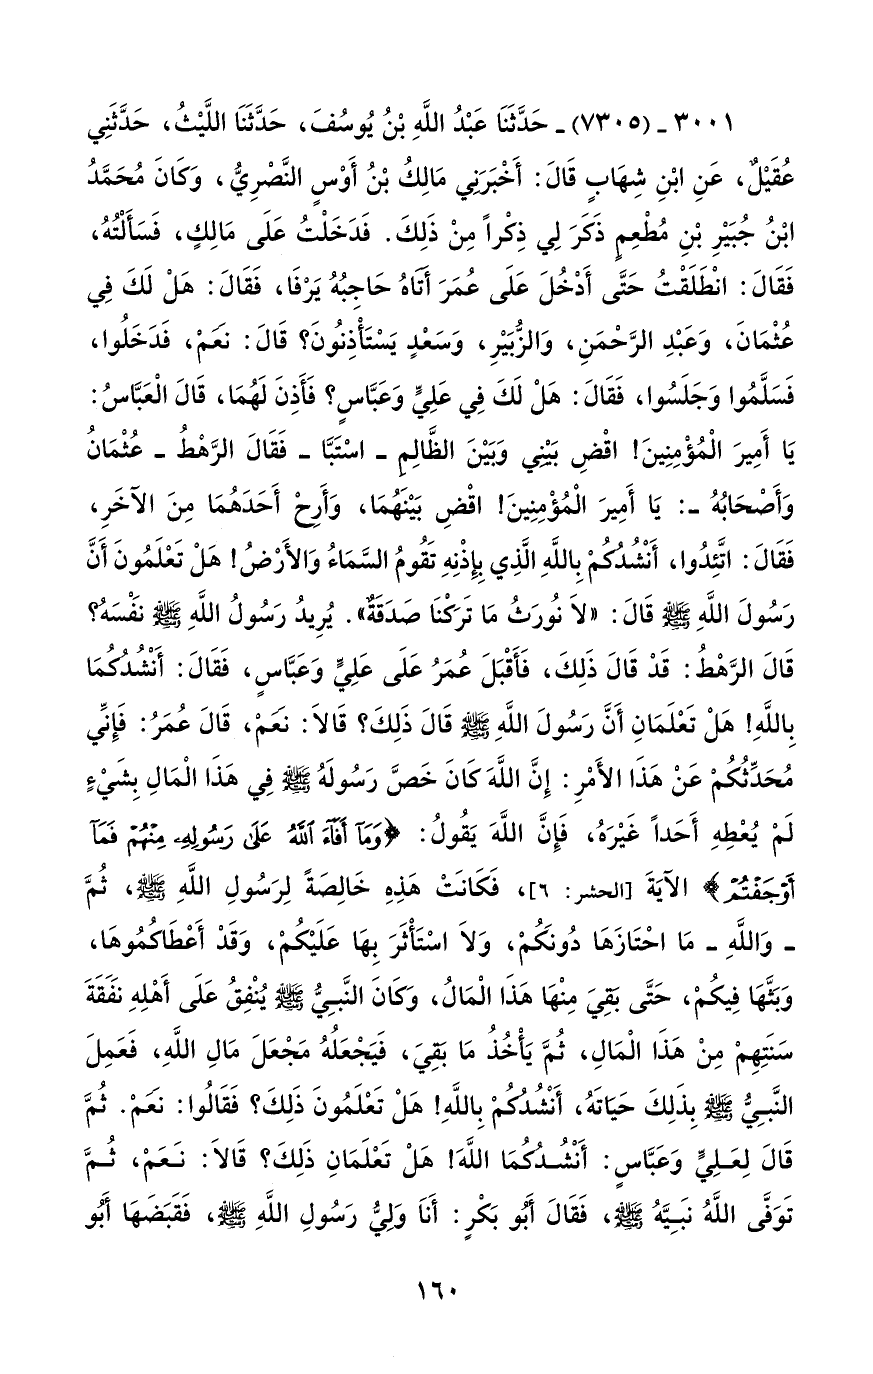 ٣٠٠١ ـ (٧٣٠٥) ـ حَدَّثَنَا عَبْدُ اللَّهِ بْنُ يُوسُفَ، حَدَّثَنَا اللَّيْثُ، حَدَّثَنِي
عُقَيْلٌ، عَنِ ابْنِ شِهَابٍ قَالَ: أَخْبَرَنِي مَالِكُ بْنُ أَوْسٍ النَّصْرِيُّ، وَكَانَ مُحَمَّدُ
ابْنُ جُبَيْرِ بْنِ مُطْعِمٍ ذَكَرَ لِي ذِكْراً مِنْ ذَلِكَ. فَدَخَلْتُ عَلَى مَالِكٍ، فَسَأَلْتُهُ،
فَقَالَ: انْطَلَقْتُ حَتَّى أَدْخُلَ عَلَى عُمَرَ أَتَاهُ حَاجِبُهُ يَرْفَا، فَقَالَ: هَلْ لَكَ فِي
عُثْمَانَ، وَعَبْدِ الرَّحْمَنِ، وَالزُّبَيْرِ، وَسَعْدٍ يَسْتَأْذِنُونَ؟ قَالَ: نَعَمْ، فَدَخَلُوا،
فَسَلَّمُوا وَجَلَسُوا، فَقَالَ: هَلْ لَكَ فِي عَلِيٍّ وَعَبَّاسٍ؟ فَأَذِنَ لَهُمَا، قَالَ الْعَبَّاسُ:
يَا أَمِيرَ الْمُؤْمِنِينَ! اقْضِ بَيْنِي وَبَيْنَ الظَّالِمِ ـ اسْتَبَّا ـ فَقَالَ الرَّهْطُ ـ عُثْمَانُ
وَأَصْحَابُهُ ـ: يَا أَمِيرَ الْمُؤْمِنِينَ! اقْضِ بَيْنَهُمَا، وَأَرِحْ أَحَدَهُمَا مِنَ الآخَرِ،
فَقَالَ: اتَّئِدُوا، أَنْشُدُكُمْ بِاللَّهِ الَّذِي بِإِذْنِهِ تَقُومُ السَّمَاءُ وَالأَرْضُ! هَلْ تَعْلَمُونَ أَنَّ
رَسُولَ اللَّهِ ﷺ قَالَ: «لاَ نُورَثُ مَا تَرَكْنَا صَدَقَةٌ». يُرِيدُ رَسُولُ اللَّهِ ﷺ نَفْسَهُ؟
قَالَ الرَّهْطُ: قَدْ قَالَ ذَلِكَ، فَأَقْبَلَ عُمَرُ عَلَى عَلِيٍّ وَعَبَّاسٍ، فَقَالَ: أَنْشُدُكُمَا
بِاللَّهِ! هَلْ تَعْلَمَانِ أَنَّ رَسُولَ اللَّهِ ﷺ قَالَ ذَلِكَ؟ قَالاَ: نَعَمْ، قَالَ عُمَرُ: فَإِنِّي
مُحَدِّثُكُمْ عَنْ هَذَا الأَمْرِ: إِنَّ اللَّهَ كَانَ خَصَّ رَسُولَهُ ﷺ فِي هَذَا الْمَالِ بِشَيْءٍ
لَمْ يُعْطِهِ أَحَداً غَيْرَهُ، فَإِنَّ اللَّهَ يَقُولُ: ﴿وَمَآ أَفَآءَ ٱللَّهُ عَلَىٰ رَسُولِهِۦ مِنْهُمْ فَمَآ
أَوْجَفْتُمْ﴾ الآيَةَ [الحشر: ٦]، فَكَانَتْ هَذِهِ خَالِصَةً لِرَسُولِ اللَّهِ ﷺ، ثُمَّ
ـ وَاللَّهِ ـ مَا احْتَازَهَا دُونَكُمْ، وَلاَ اسْتَأْثَرَ بِهَا عَلَيْكُمْ، وَقَدْ أَعْطَاكُمُوهَا،
وَبَثَّهَا فِيكُمْ، حَتَّى بَقِيَ مِنْهَا هَذَا الْمَالُ، وَكَانَ النَّبِيُّ ﷺ يُنْفِقُ عَلَى أَهْلِهِ نَفَقَةَ
سَنَتِهِمْ مِنْ هَذَا الْمَالِ، ثُمَّ يَأْخُذُ مَا بَقِيَ، فَيَجْعَلُهُ مَجْعَلَ مَالِ اللَّهِ، فَعَمِلَ
النَّبِيُّ ﷺ بِذَلِكَ حَيَاتَهُ، أَنْشُدُكُمْ بِاللَّهِ! هَلْ تَعْلَمُونَ ذَلِكَ؟ فَقَالُوا: نَعَمْ. ثُمَّ
قَالَ لِعَلِيٍّ وَعَبَّاسٍ: أَنْشُدُكُمَا اللَّهَ! هَلْ تَعْلَمَانِ ذَلِكَ؟ قَالاَ: نَعَمْ، ثُمَّ
تَوَفَّى اللَّهُ نَبِيَّهُ ﷺ، فَقَالَ أَبُو بَكْرٍ: أَنَا وَلِيُّ رَسُولِ اللَّهِ ﷺ، فَقَبَضَهَا أَبُو
١٦٠